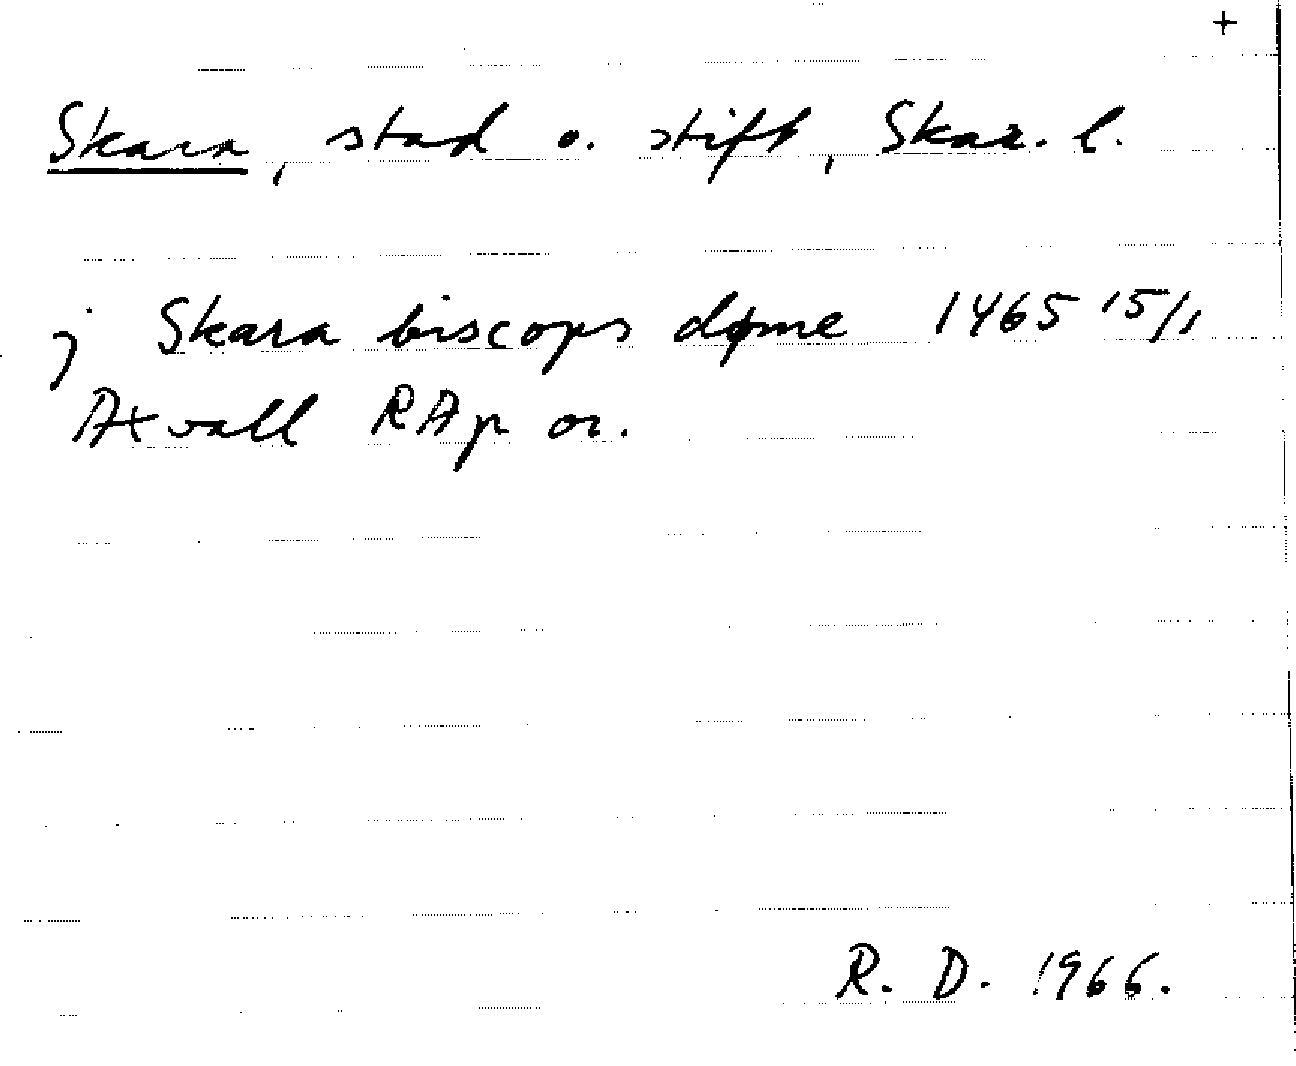 +
Skara, stad o. stift, Skar. l.
j Skara biscops døme 1465 15/1
Axvall RAp or.
R. D. 1966.